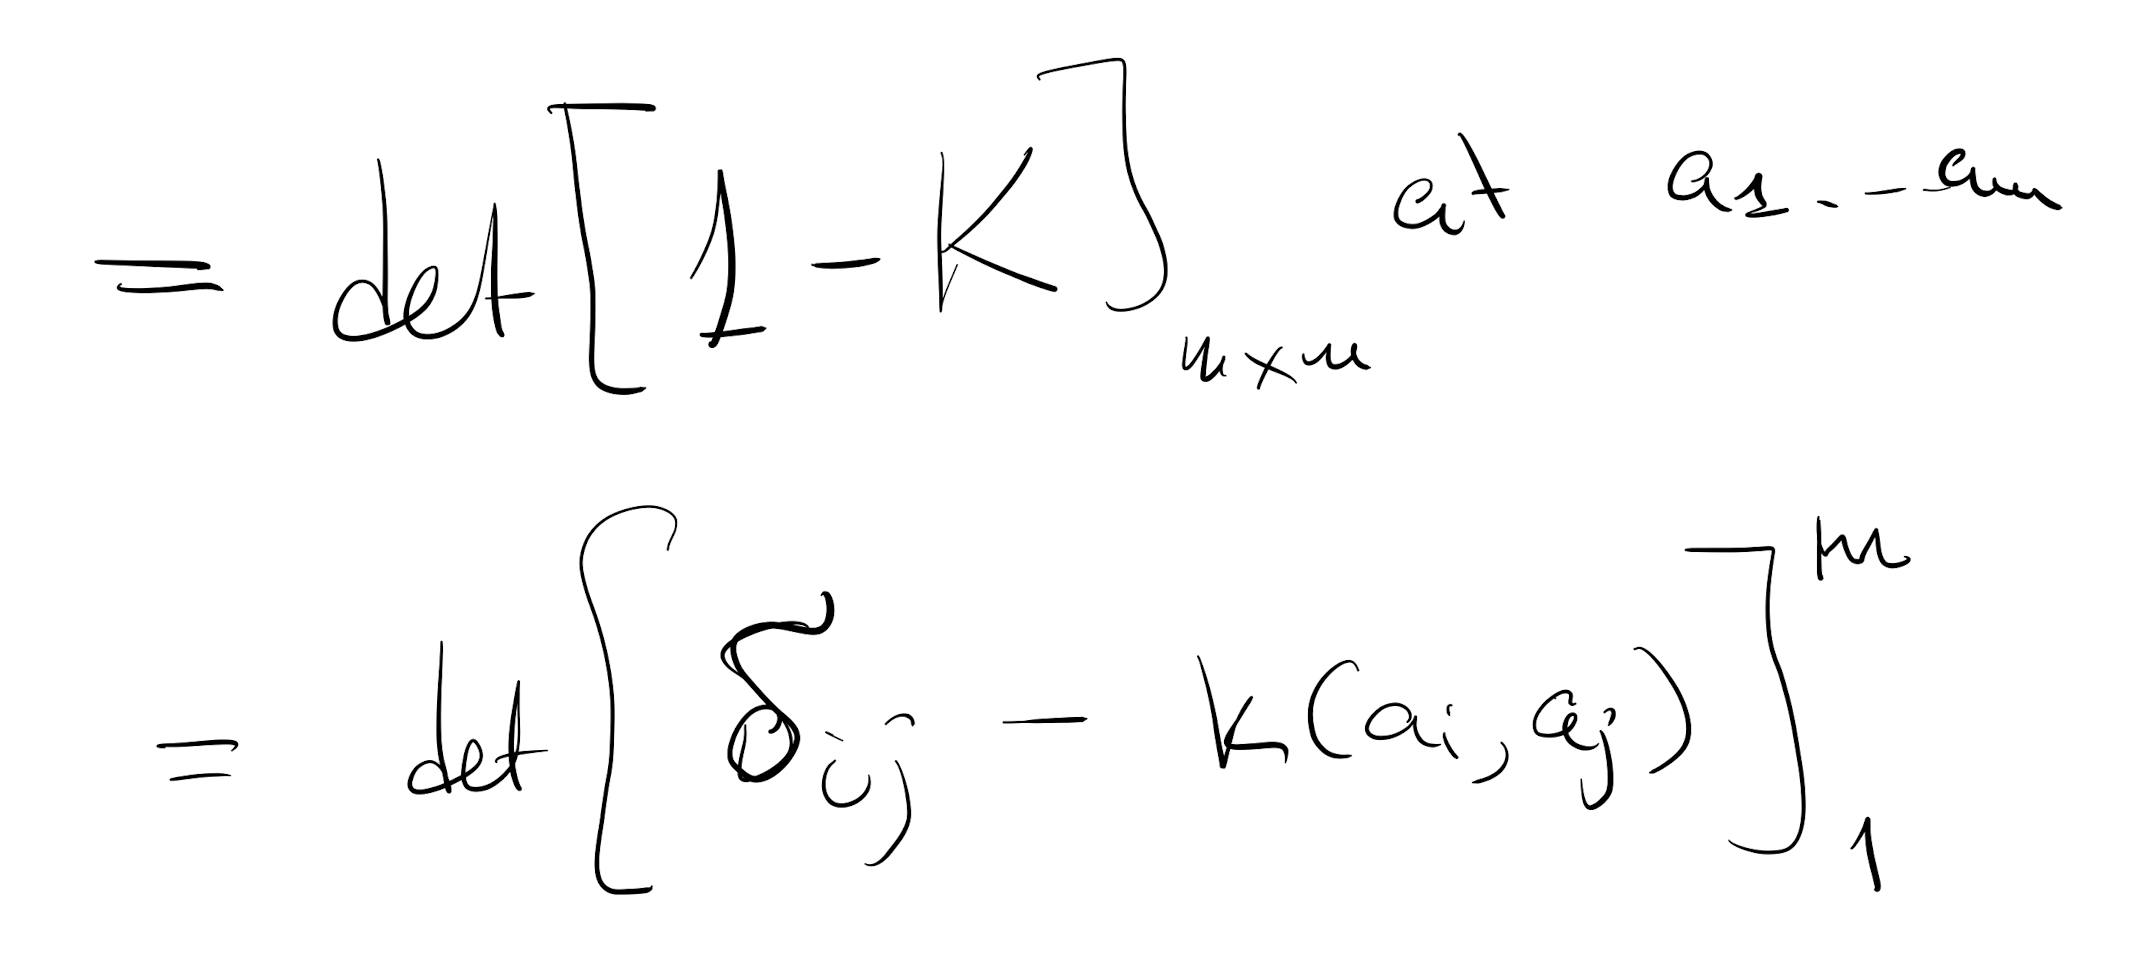 = det [1 - K]_{m×m} at a_1 . - - a_m
= det [δ_{ij} - K(a_i, a_j)]_1^m